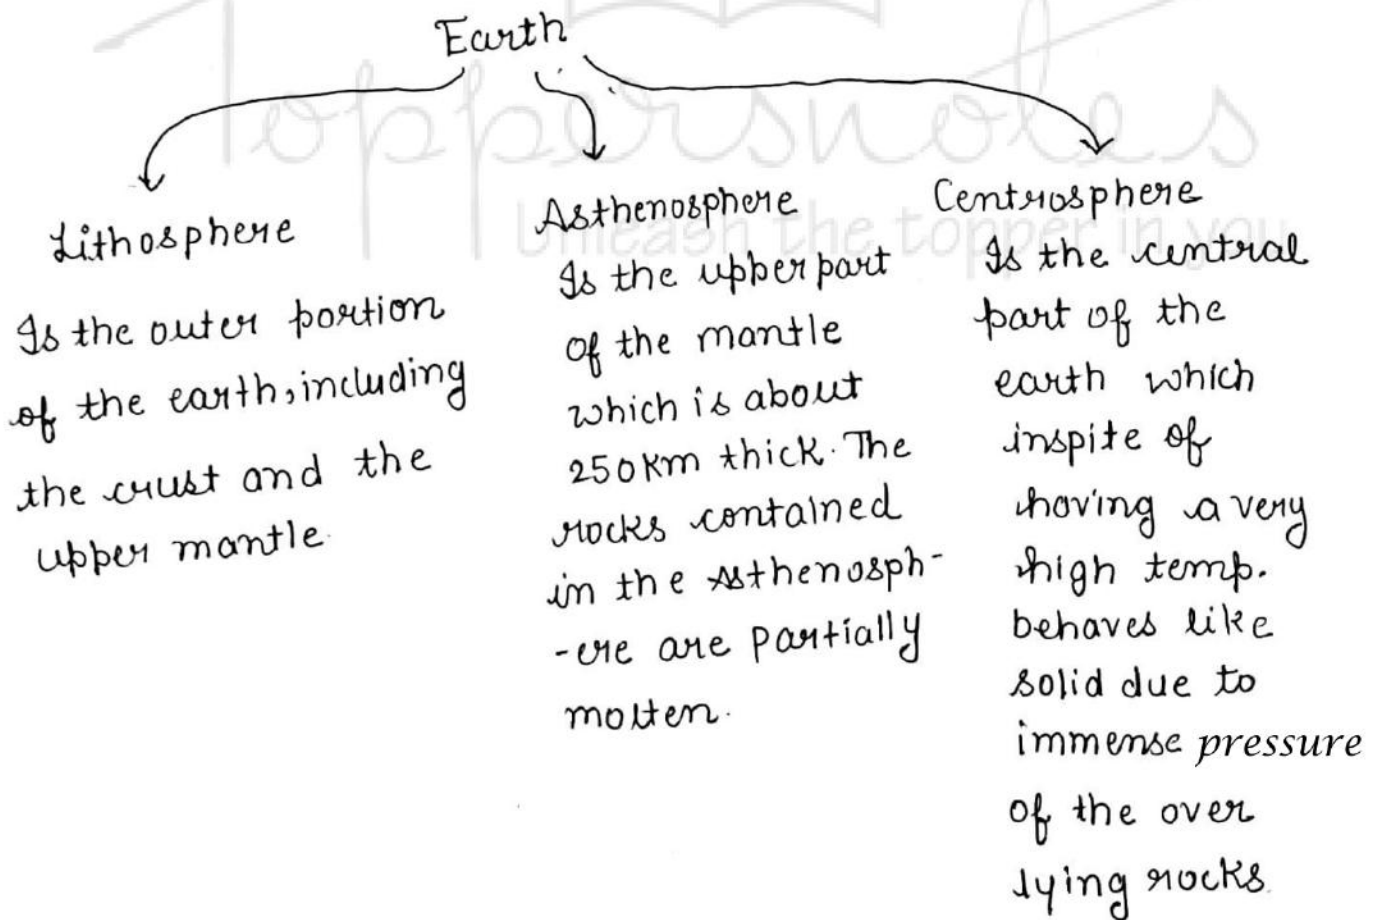 Earth
Toppersnotes
Unleash the topper in you
Lithosphere
Is the outer portion
of the earth, including
the crust and the
upper mantle.
Asthenosphere
Is the upper part
of the mantle
which is about
250km thick. The
rocks contained
in the Asthenosph-
-ere are partially
molten.
Centrosphere
Is the central
part of the
earth which
inspite of
having a very
high temp.
behaves like
solid due to
immense pressure
of the over
lying rocks.